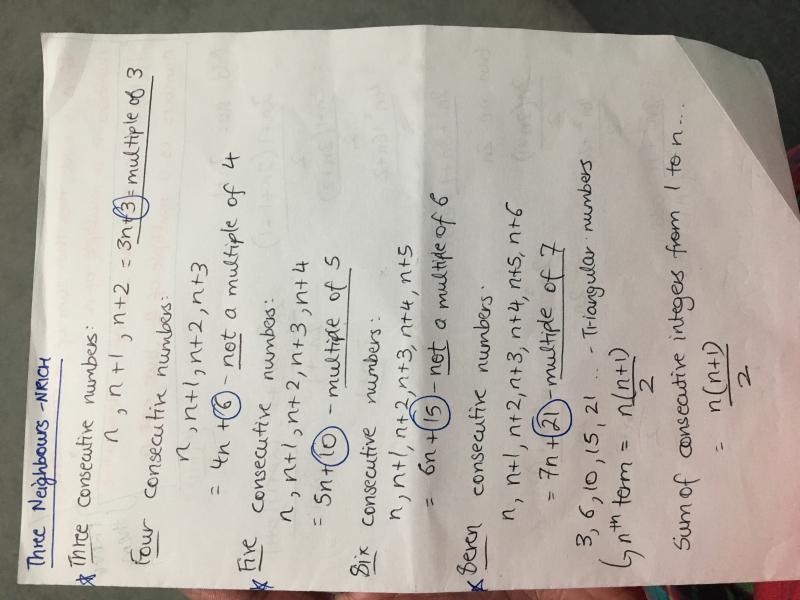 Three Neighbours - NRICH
* Three consecutive numbers:
n, n+1, n+2 = 3n+3 = multiple of 3
Four consecutive numbers:
n, n+1, n+2, n+3
= 4n + 6 - not a multiple of 4
* Five consecutive numbers:
n, n+1, n+2, n+3, n+4
= 5n+10 - multiple of 5
Six consecutive numbers:
n, n+1, n+2, n+3, n+4, n+5
= 6n+15 - not a multiple of 6
* Seven consecutive numbers:
n, n+1, n+2, n+3, n+4, n+5, n+6
= 7n+21 - multiple of 7
3, 6, 10, 15, 21 ... - Triangular numbers
↳ nth term = n(n+1)/2
Sum of consecutive integers from 1 to n...
= n(n+1)/2